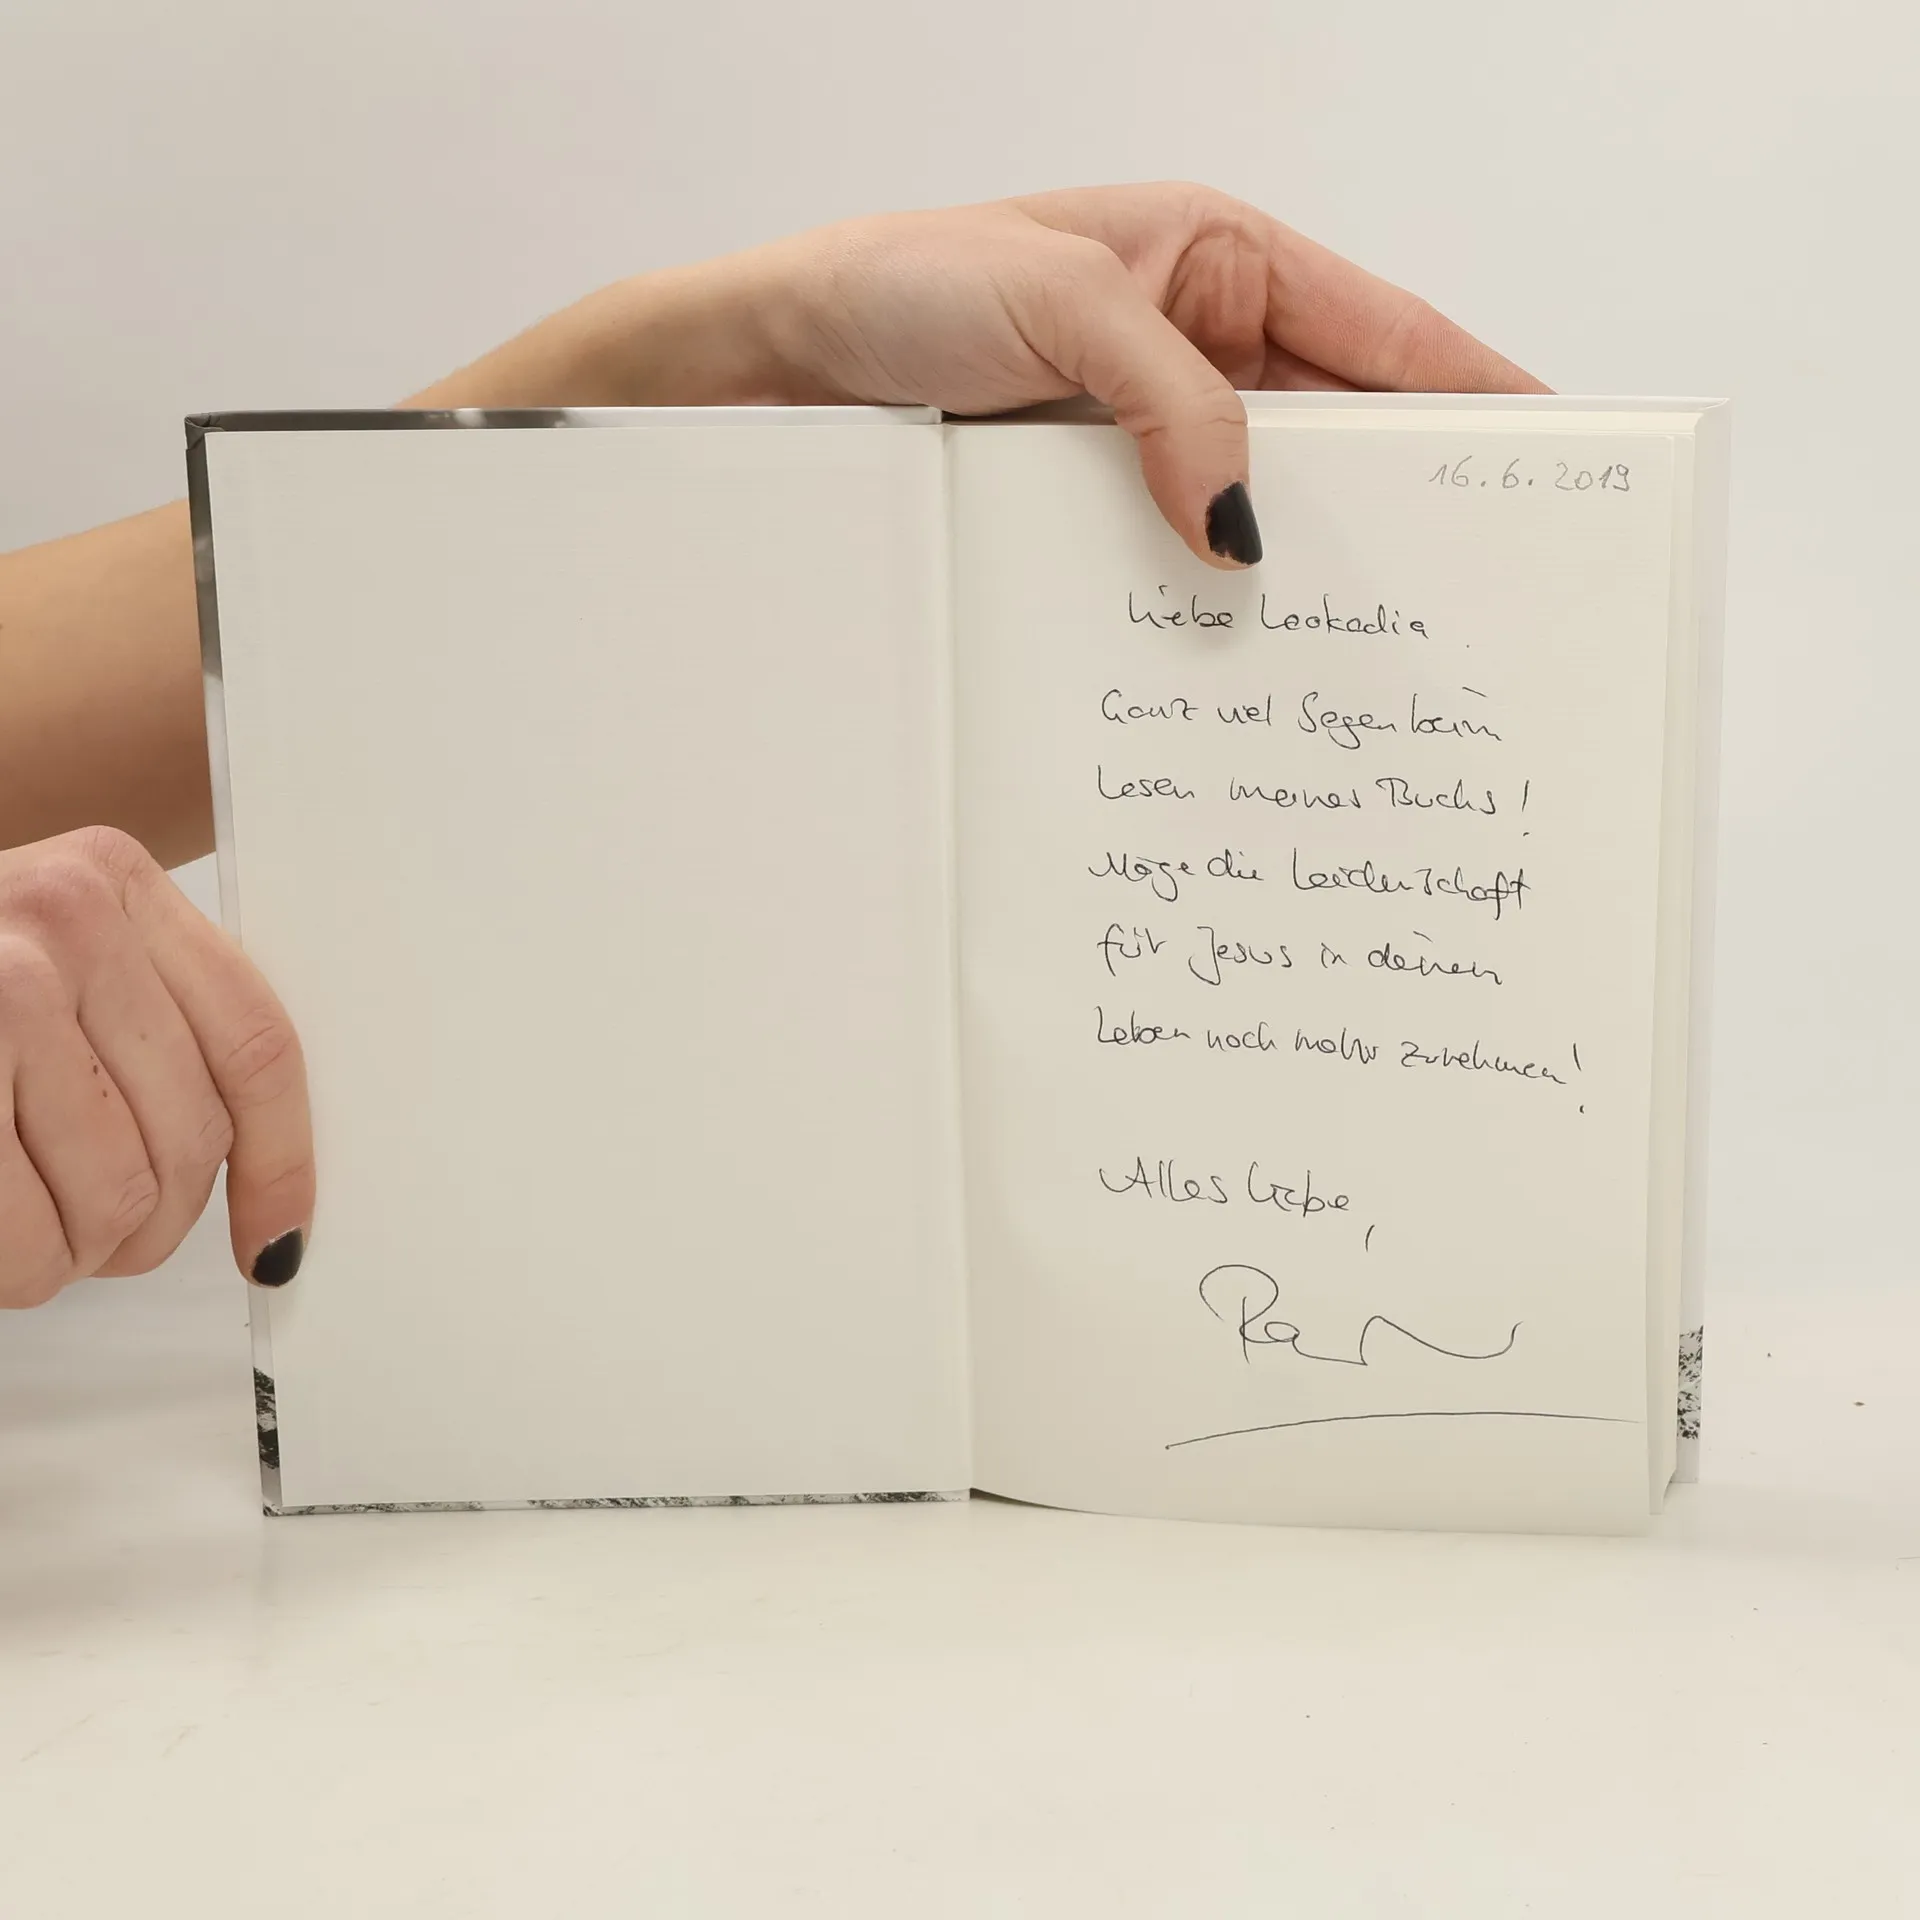 16.6.2019
Liebe Leokadia
Ganz viel Segen beim
Lesen meines Buchs!
Möge die Leidenschaft
für Jesus in deinem
Leben noch mehr zunehmen!
Alles Liebe,